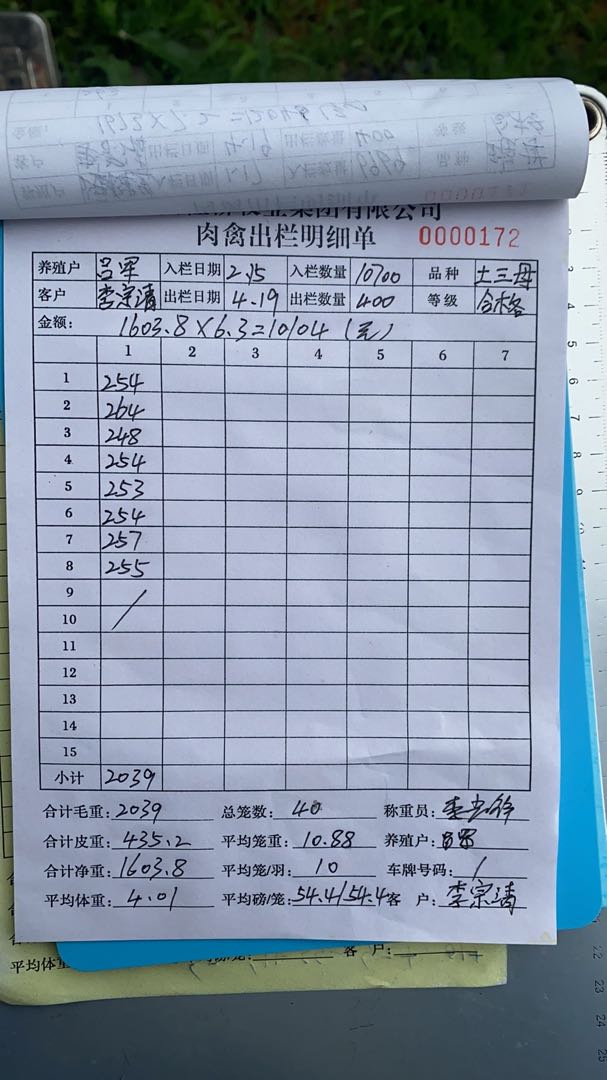 集团有限公司
肉禽出栏明细单 0000172
养殖户 吕军 入栏日期 2.15 入栏数量 10700 品种 土三母
客户 李宗清 出栏日期 4.19 出栏数量 400 等级 合格
金额: 1603.8×6.3=10104（元）
1 2 3 4 5 6 7
1 254
2 264
3 248
4 254
5 253
6 254
7 257
8 255
9
10
11
12
13
14
15
小计 2039
合计毛重: 2039 总笼数: 40 称重员:
合计皮重: 435.2 平均笼重: 10.88 养殖户: 吕军
合计净重: 1603.8 平均笼/羽: 10 车牌号码: /
平均体重: 4.01 平均磅/笼: 54.4/54.4 客 户: 李宗清
平均体重 客 户: